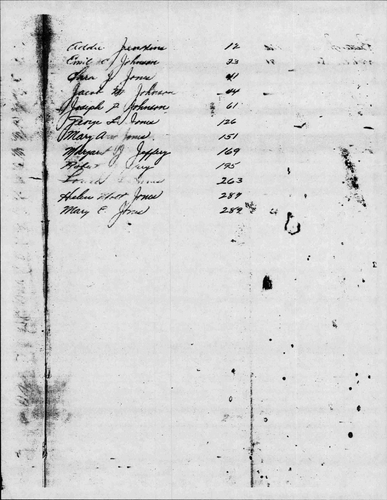 Addie Jenkins 12
Emil W Johnson 23
Sara J. Jones 41
Jacob M Johnson 44
Joseph P Johnson 61
George L. Jones 126
Mary Ann Jones 151
Margaret J Jeffrey 169
195
Jones 263
Helen Jones 287
Mary E. Jones 289